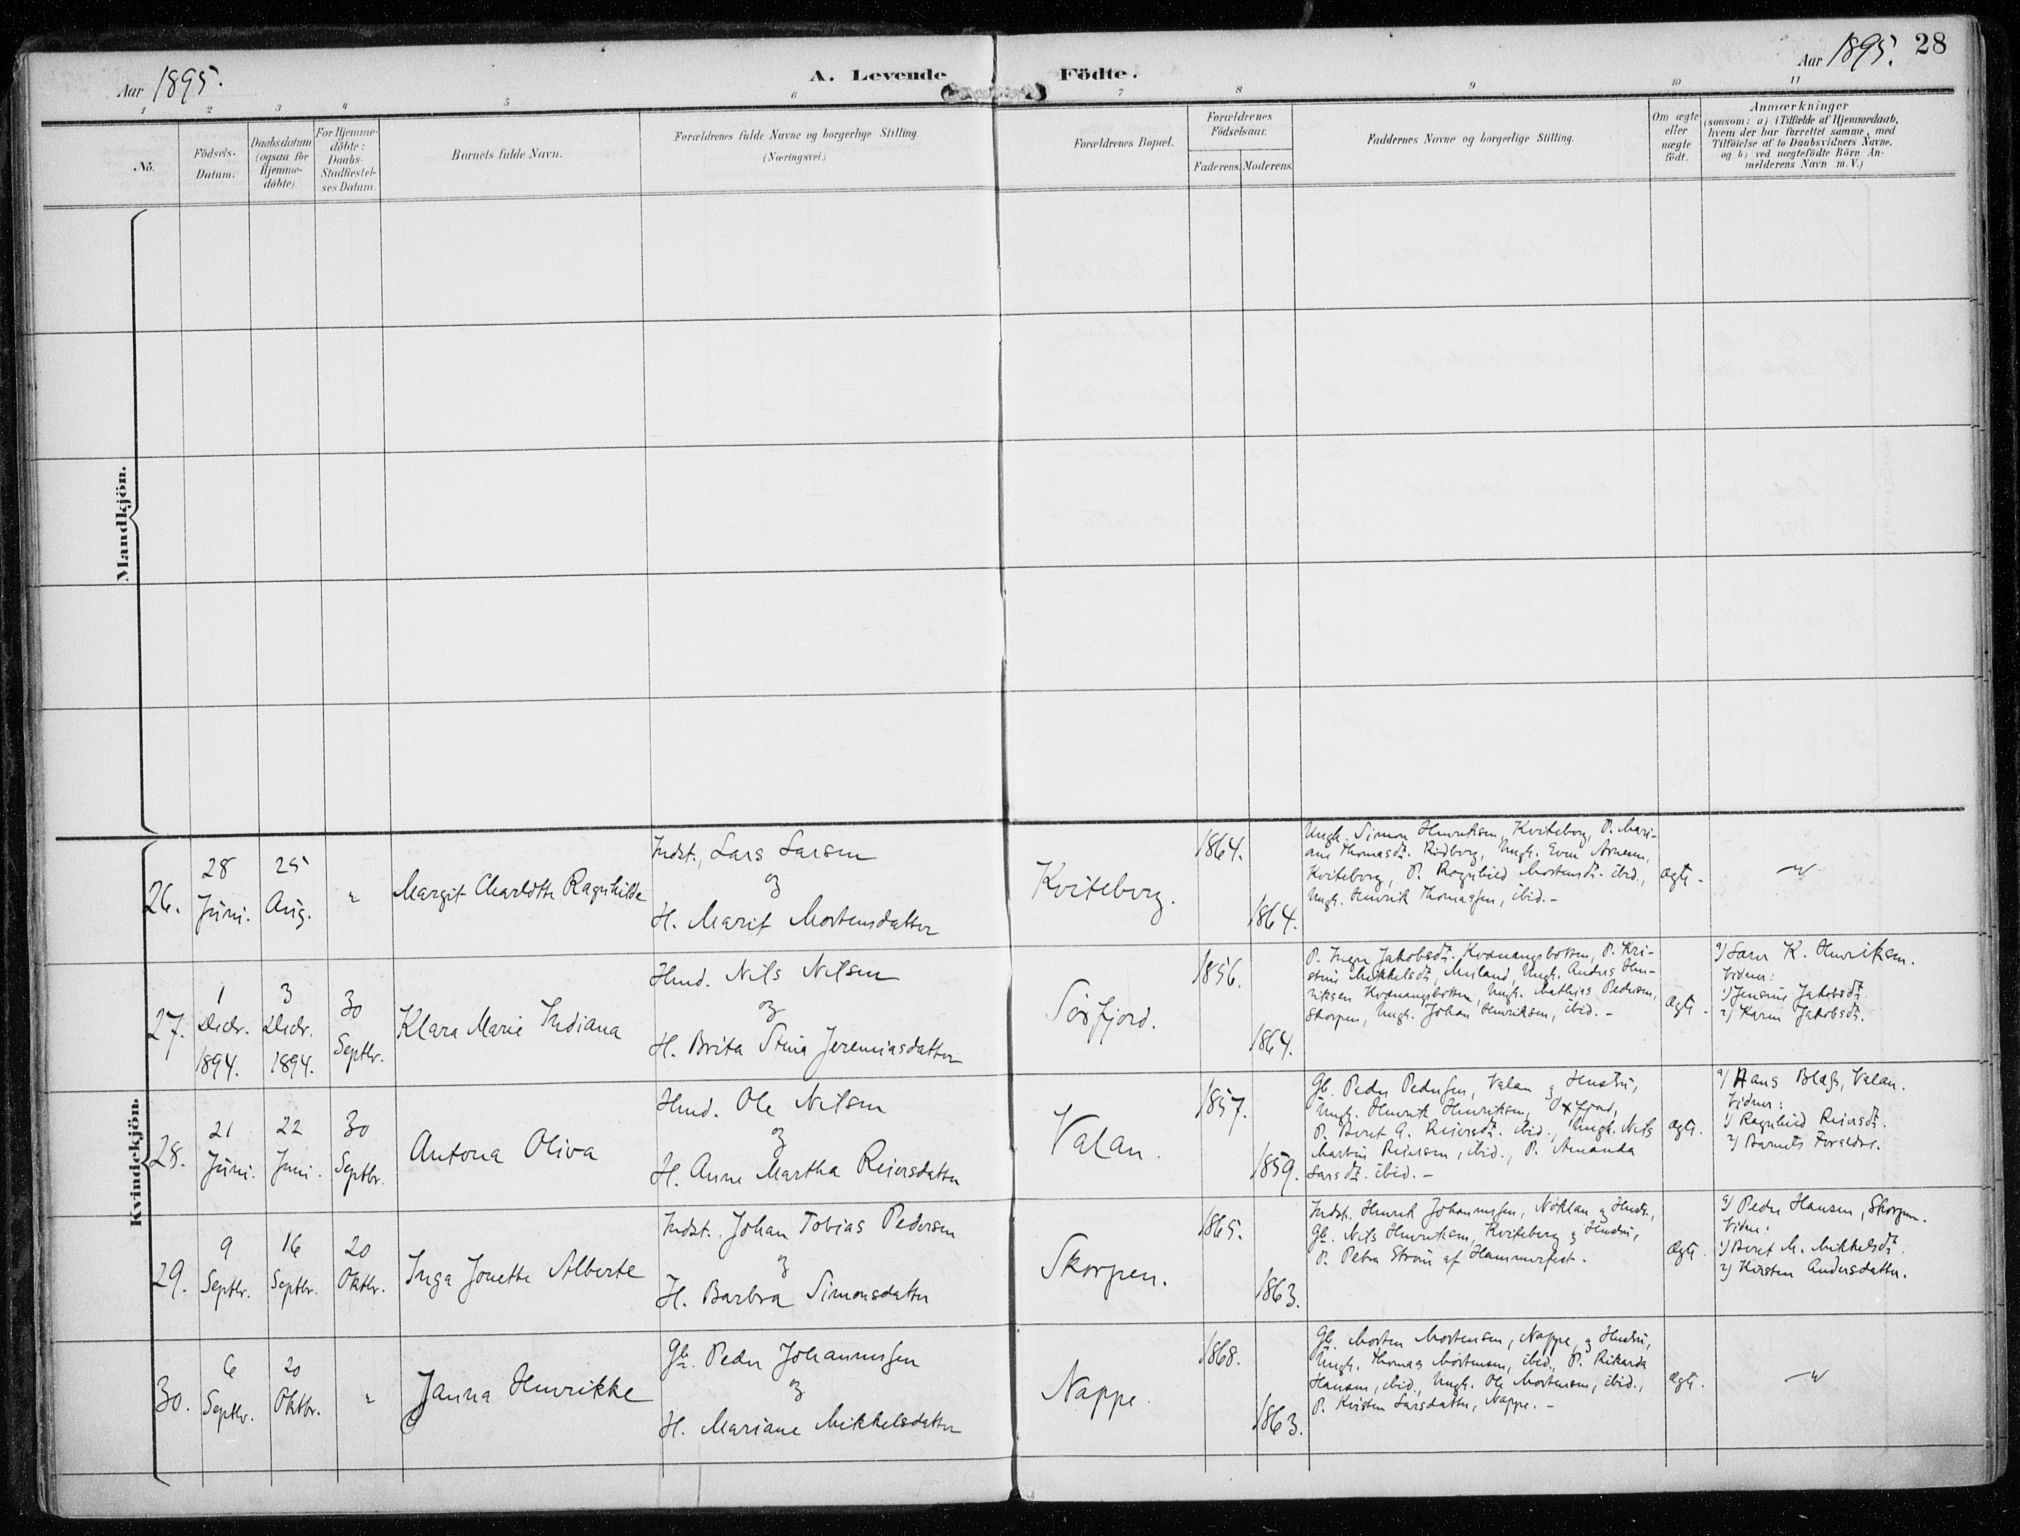 Aar 1895.
A. Levende Födte.
Aar 1895. 28
1 2 3 4 5 6 7 8 9 10 11
No.
Födsels-
Datum.
Daabsdatum
(ogsaa for
Hjemme-
döbte)
For Hjemme-
döbte:
Daabs-
Stadfæstel-
ses Datum.
Barnets fulde Navn.
Forældrenes fulde Navne og borgerlige Stilling.
(Næringsvei.)
Forældrenes Bopæl.
Forældrenes
Födselsaar.
Faderens. Moderens.
Faddernes Navne og borgerlige Stilling.
Om ægte
eller
uægte
födt.
Anmærkninger
(saasom: a) i Tilfælde af Hjemmedaab,
hvem der har forrettet samme, med
Tilföielse af to Daabsvidners Navne,
og b) ved uægtefödte Börn An-
melderens Navn m. V.)
Mandkjön.
Kvindekjön.
26.
28
Juni.
25
Aug.
"
Margit Charlotte Ragnhilde
Indst., Lars Larsen
og
H. Marit Mortensdatter
Kviteberg.
1864.
1864.
Ungk. Simon Henriksen, Kviteberg, P. Mari-
ane Thomasdt. Rødberg, Ungk. Even Arnesen,
Kviteberg, P. Ragnhild Mortensdt. ibid.,
Ungk. Henrik Thomassen, ibid. -
Ægte.
27.
1
Decbr.
1894.
3
Decbr.
1894.
30
Septbr.
Klara Marie Indiana
Hmd. Nils Nilsen
og
H. Brita Stina Jeremiasdatter
Sørfjord.
1856.
1864.
P. Inger Jakobsdt. Kvænangsbotten, P. Kri-
stine Mikkelsdt, Meiland, Ungk. Anders Hen-
riksen Kvænangsbotten, Ungk. Mathias Pedersen,
Skorpen, Ungk. Johan Henriksen, ibid. -
Ægte.
a) Lars K. Henriksen.
Vidner:
1) Jensine Jakobsdt.
2) Karen Jakobsdt.
28.
21
Juni.
22
Juni.
30
Septbr.
Antona Oliva
Hmd. Ole Nilsen
og
H. Anne Martha Reiersdatter
Valan.
1857.
1859.
Gb. Peder Pedersen, Valan og Hustru,
Ungk. Henrik Henriksen, Oxfjord,
P. Beret A. Reiersdt. ibid., Ungk. Nils
Martin Reiersen, ibid., P. Amanda
Larsdt. ibid. -
Ægte.
a) Hans Blass, Valan.
Vidner:
1) Ragnhild Reiersdt.
2) Barnets Forældre.
29.
9
Septbr.
16
Septbr.
20
Oktbr.
Inga Jonette Alberte
Indst. Johan Tobias Pedersen
og
H. Barbra Simonsdatter
Skorpen.
1865.
1863.
Indst. Henrik Johannessen, Nøklan og Hustr.,
Gb. Nils Henriksen, Kviteberg og Hustru,
P. Petra Strøm af Hammerfest. -
Ægte.
a) Peder Hansen, Skorpen.
Vidner:
1) Beret M. Mikkelsdt.
2) Kirsten Andersdatter.
30.
6
Septbr.
20
Oktbr.
"
Janna Henrikke
Gb. Peder Johannessen
og
H. Mariane Mikkelsdatter
Nappe.
1868.
1863.
Gb. Morten Mortensen, Nappe, og Hustru,
Ungk. Thomas Mortensen, ibid., P. Rikarda
Hansen, ibid., Ungk. Ole Mortensen, ibid.,
P. Kirsten Larsdatter, Nappe. -
Ægte.